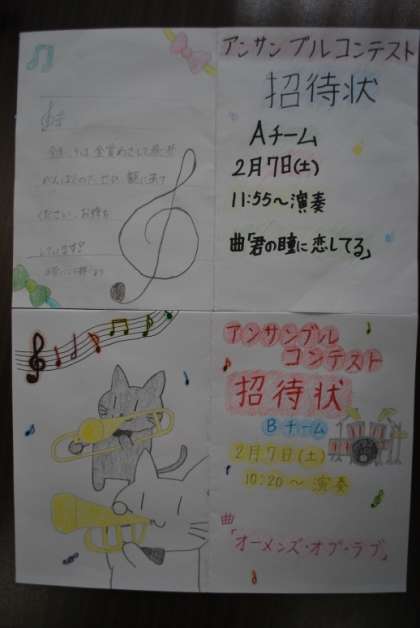 アンサンブルコンテスト
招待状
Aチーム
2月7日(土)
11:55~演奏
曲「君の瞳に恋してる」
ください。お待ち
しています!
アンサンブル
コンテスト
招待状
Bチーム
2月7日(土)
10:20~演奏
曲
「オーメンズ・オブ・ラブ」